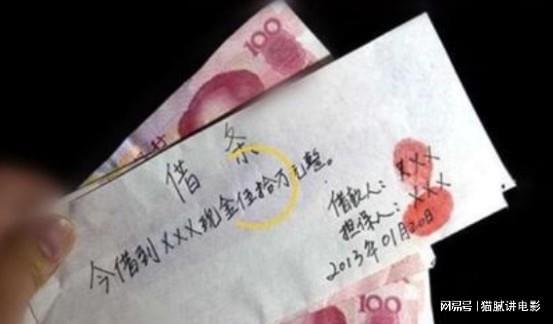 100
借条
今借到XXX现金伍拾万元整。
借款人：XXX
担保人：XXX
2013年01月20日
100
网易号 | 猫腻讲电影